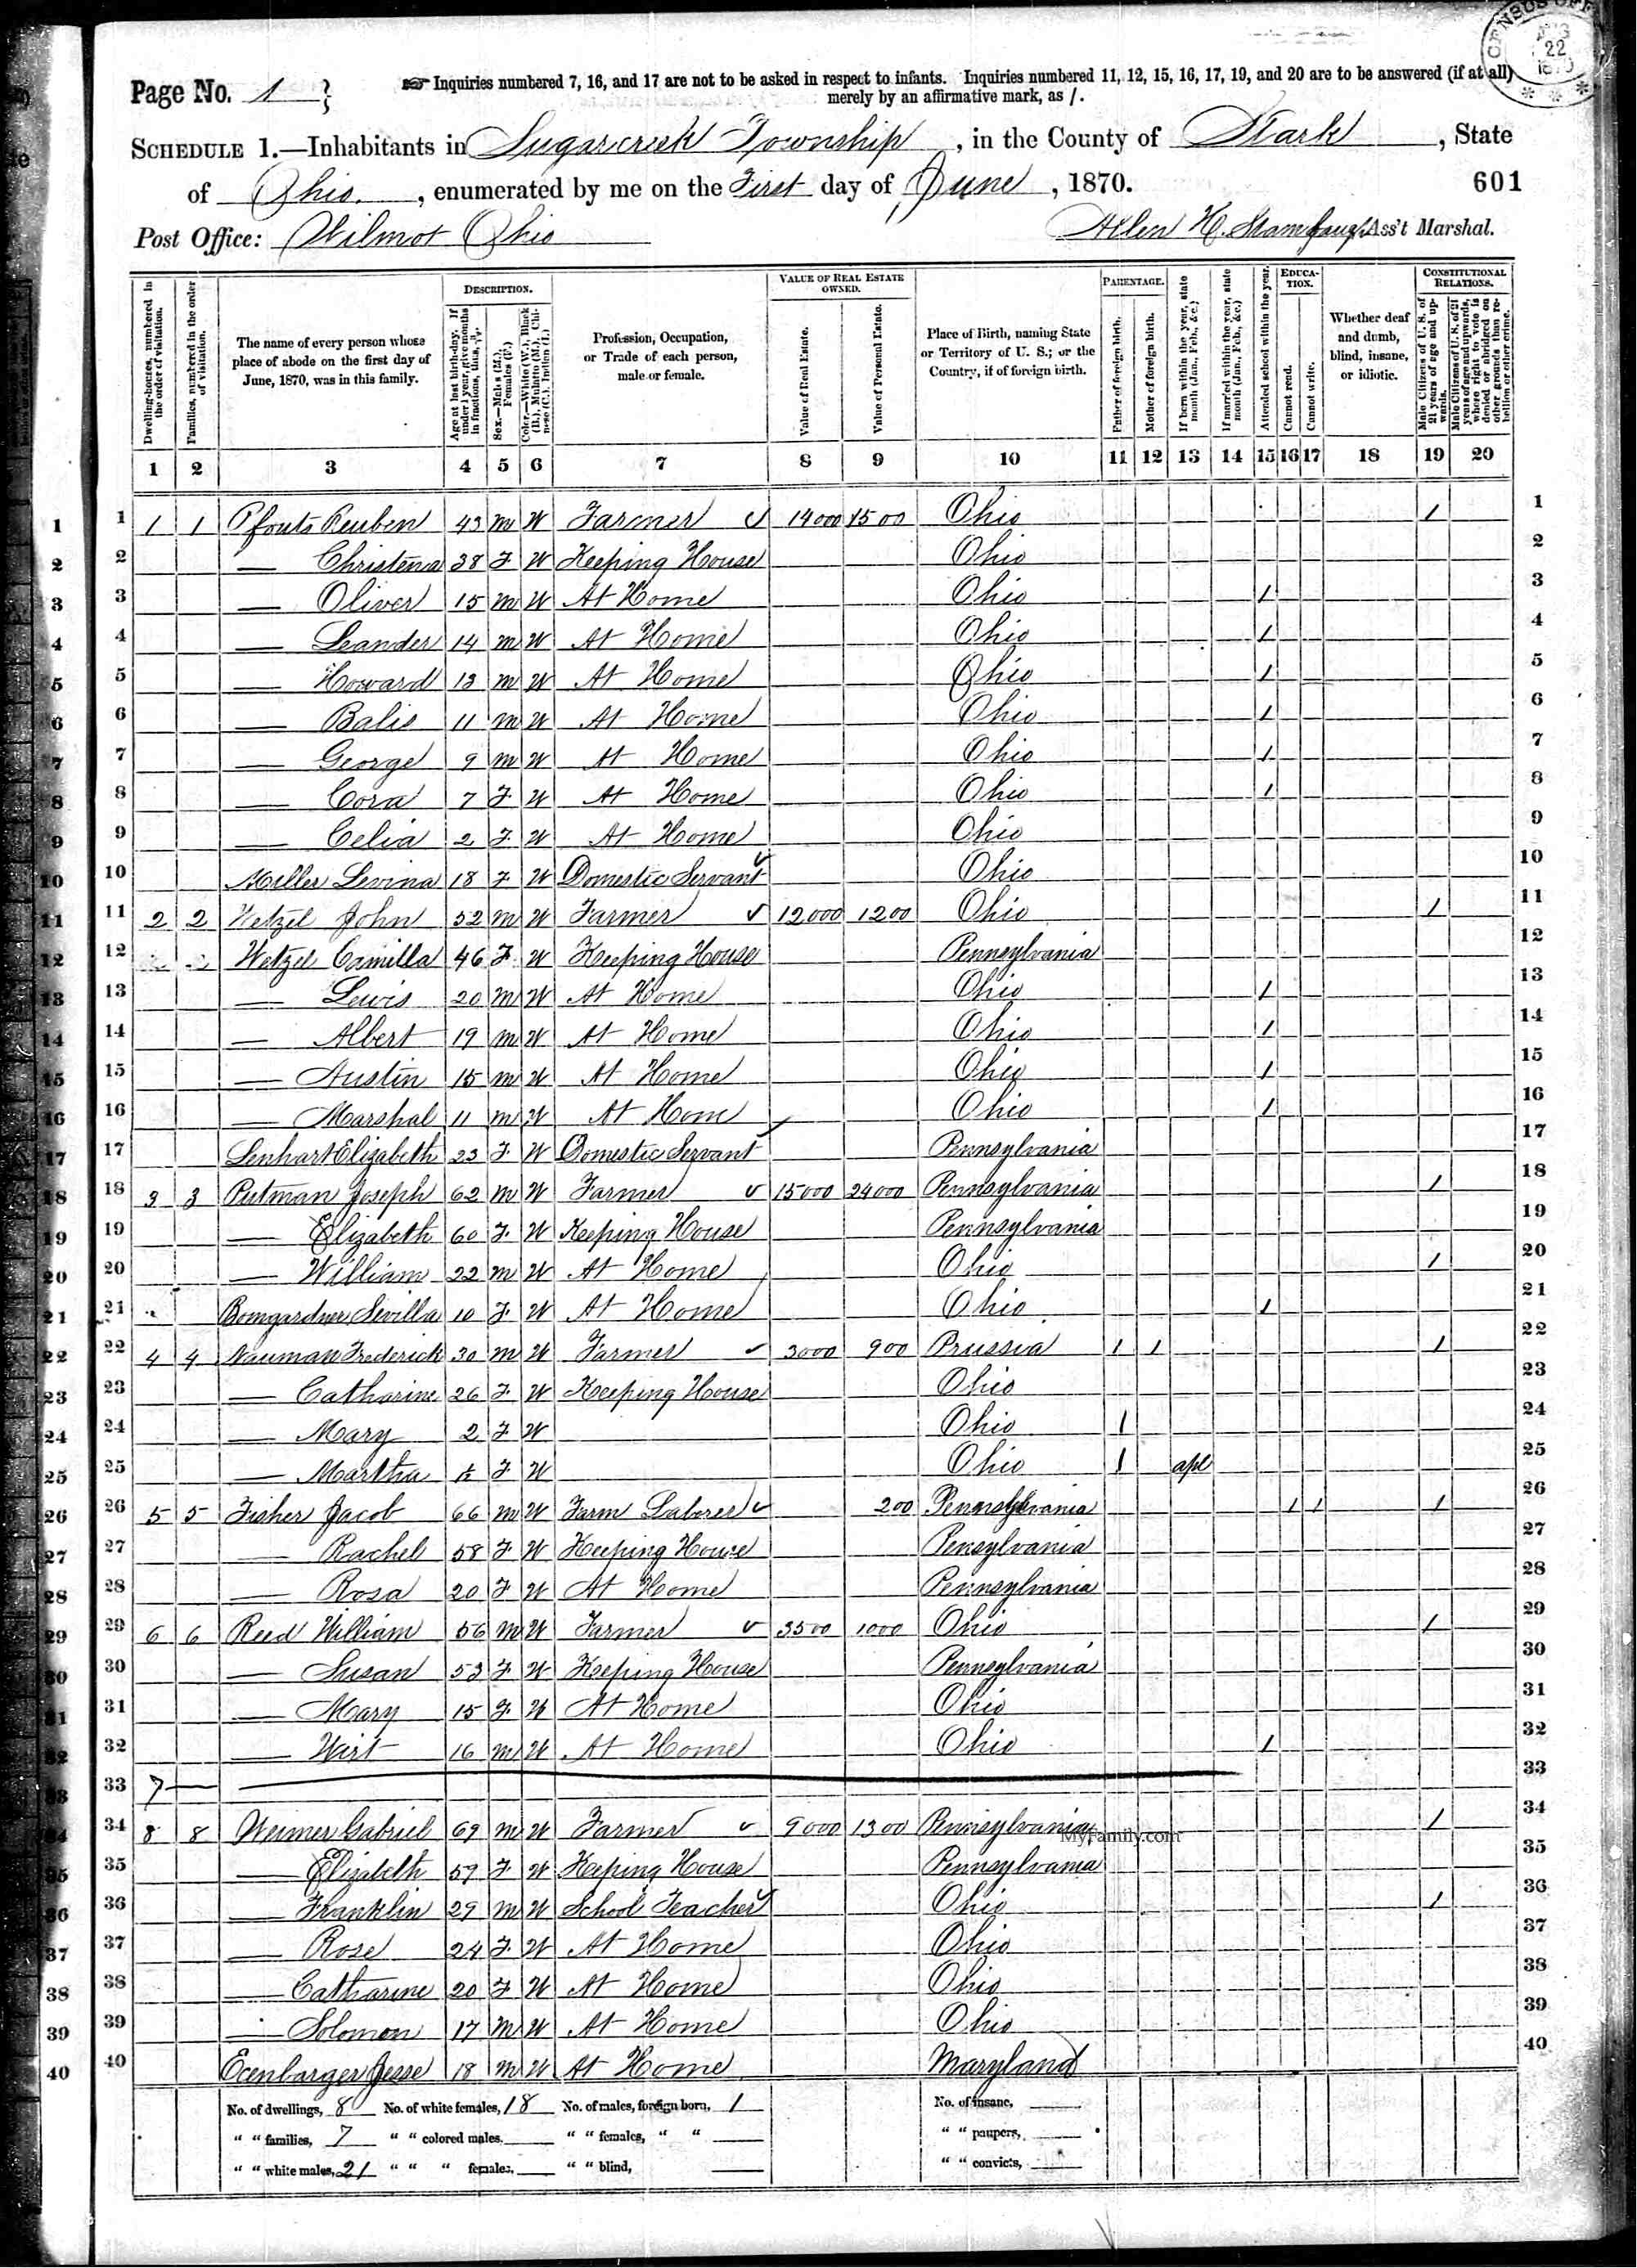 CENSUS OFF
AUG
22
1870
Page No. 1
Inquiries numbered 7, 16, and 17 are not to be asked in respect to infants. Inquiries numbered 11, 12, 15, 16, 17, 19, and 20 are to be answered (if at all)
merely by an affirmative mark, as /.
SCHEDULE 1.—Inhabitants in Sugarcreek Township, in the County of Stark, State
of Ohio, enumerated by me on the First day of June, 1870. 601
Post Office: Wilmot Ohio Allen H. Stambaugh Ass't Marshal.
Dwelling-houses, numbered in the order of visitation.
Families, numbered in the order of visitation.
The name of every person whose place of abode on the first day of June, 1870, was in this family.
DESCRIPTION.
Age at last birth-day. If under 1 year, give months in fractions, thus, 3/12.
Sex.—Males (M.), Females (F.)
Color.—White (W.), Black (B.), Mulatto (M.), Chinese (C.), Indian (I.)
Profession, Occupation, or Trade of each person, male or female.
VALUE OF REAL ESTATE OWNED.
Value of Real Estate.
Value of Personal Estate.
Place of Birth, naming State or Territory of U. S.; or the Country, if of foreign birth.
PARENTAGE.
Father of foreign birth.
Mother of foreign birth.
If born within the year, state month (Jan., Feb., &c.)
If married within the year, state month (Jan., Feb., &c.)
Attended school within the year.
EDUCATION.
Cannot read.
Cannot write.
Whether deaf and dumb, blind, insane, or idiotic.
CONSTITUTIONAL RELATIONS.
Male Citizens of U. S. of 21 years of age and upwards.
Male Citizens of U. S. of 21 years of age and upwards, whose right to vote is denied or abridged on other grounds than rebellion or other crime.
1 2 3 4 5 6 7 8 9 10 11 12 13 14 15 16 17 18 19 20
1 1 1 1 Pfouts Reuben 43 m W Farmer 14000 1500 Ohio / 1
2 2 — Christena 38 F W Keeping House Ohio 2
3 3 — Oliver 15 m W At Home Ohio / 3
4 4 — Leander 14 m W At Home Ohio / 4
5 5 — Howard 13 m W At Home Ohio / 5
6 6 — Balis 11 m W At Home Ohio / 6
7 7 — George 9 m W At Home Ohio / 7
8 8 — Cora 7 F W At Home Ohio / 8
9 9 — Celia 2 F W At Home Ohio 9
10 10 Miller Levina 18 F W Domestic Servant Ohio 10
11 11 2 2 Wetzel John 52 m W Farmer 12000 1200 Ohio / 11
12 12 Wetzel Camilla 46 F W Keeping House Pennsylvania 12
13 13 — Lewis 20 m W At Home Ohio / 13
14 14 — Albert 19 m W At Home Ohio / 14
15 15 — Austin 15 m W At Home Ohio / 15
16 16 — Marshal 11 m W At Hom Ohio / 16
17 17 Lenhart Elizabeth 23 F W Domestic Servant Pennsylvania 17
18 18 3 3 Putman Joseph 62 m W Farmer 15000 24000 Pennsylvania / 18
19 19 — Elizabeth 60 F W Keeping House Pennsylvania 19
20 20 — William 22 m W At Home Ohio / 20
21 21 Bomgardner Sevilla 10 F W At Home Ohio / 21
22 22 4 4 Nauman Frederick 30 m W Farmer 3000 900 Prussia / / / 22
23 23 — Catharine 26 F W Keeping House Ohio 23
24 24 — Mary 2 F W Ohio / 24
25 25 — Martha F W Ohio / apl 25
26 26 5 5 Fisher Jacob 66 m W Farm Laborer 200 Pennsylvania / / / 26
27 27 — Rachel 58 F W Keeping House Pensylvania 27
28 28 — Rosa 20 F W At Home Pennsylvania 28
29 29 6 6 Reed William 56 m W Farmer 3500 1000 Ohio / 29
30 30 — Susan 53 F W Keeping House Pennsylvania 30
31 31 — Mary 15 F W At Home Ohio 31
32 32 — Wirt 16 m W At Home Ohio / 32
33 33 7 — 33
34 34 8 8 Weimer Gabriel 69 m W Farmer 9000 1300 Pennsylvania / 34
MyFamily.com
35 35 — Elizabeth 59 F W Keeping House Pennsylvania 35
36 36 — Franklin 29 m W School Teacher Ohio / 36
37 37 — Rose 24 F W At Home Ohio 37
38 38 — Catharine 20 F W At Home Ohio 38
39 39 — Solomon 17 M W At Home Ohio 39
40 40 Ecenbarger Jesse 18 m W At Home Maryland 40
No. of dwellings, 8 No. of white females, 18 No. of males, foreign born, 1 No. of insane,
" " families, 7 " " colored males, " " females, " " " " paupers,
" " white males, 21 " " " females, " " blind, " " convicts,